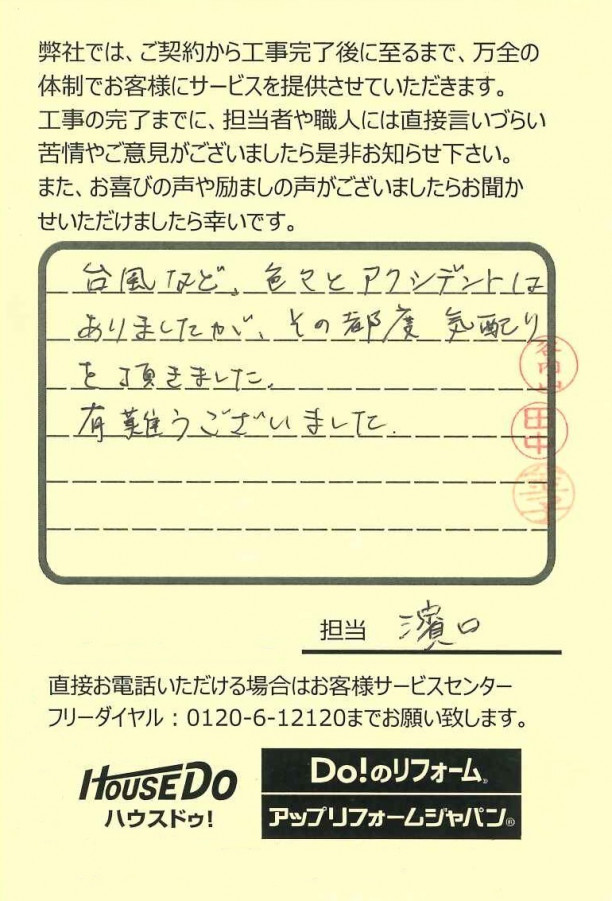 弊社では、ご契約から工事完了後に至るまで、万全の
体制でお客様にサービスを提供させていただきます。
工事の完了までに、担当者や職人には直接言いづらい
苦情やご意見がございましたら是非お知らせ下さい。
また、お喜びの声や励ましの声がございましたらお聞か
せいただけましたら幸いです。
台風など、色々とアクシデントは
ありましたが、その都度 気配り
を頂きました。
有難うございました.
谷内山
田中
担当 濱口
直接お電話いただける場合はお客様サービスセンター
フリーダイヤル：0120-6-12120までお願い致します。
HOUSEDO
ハウスドゥ!
Do!のリフォーム®
アップリフォームジャパン®